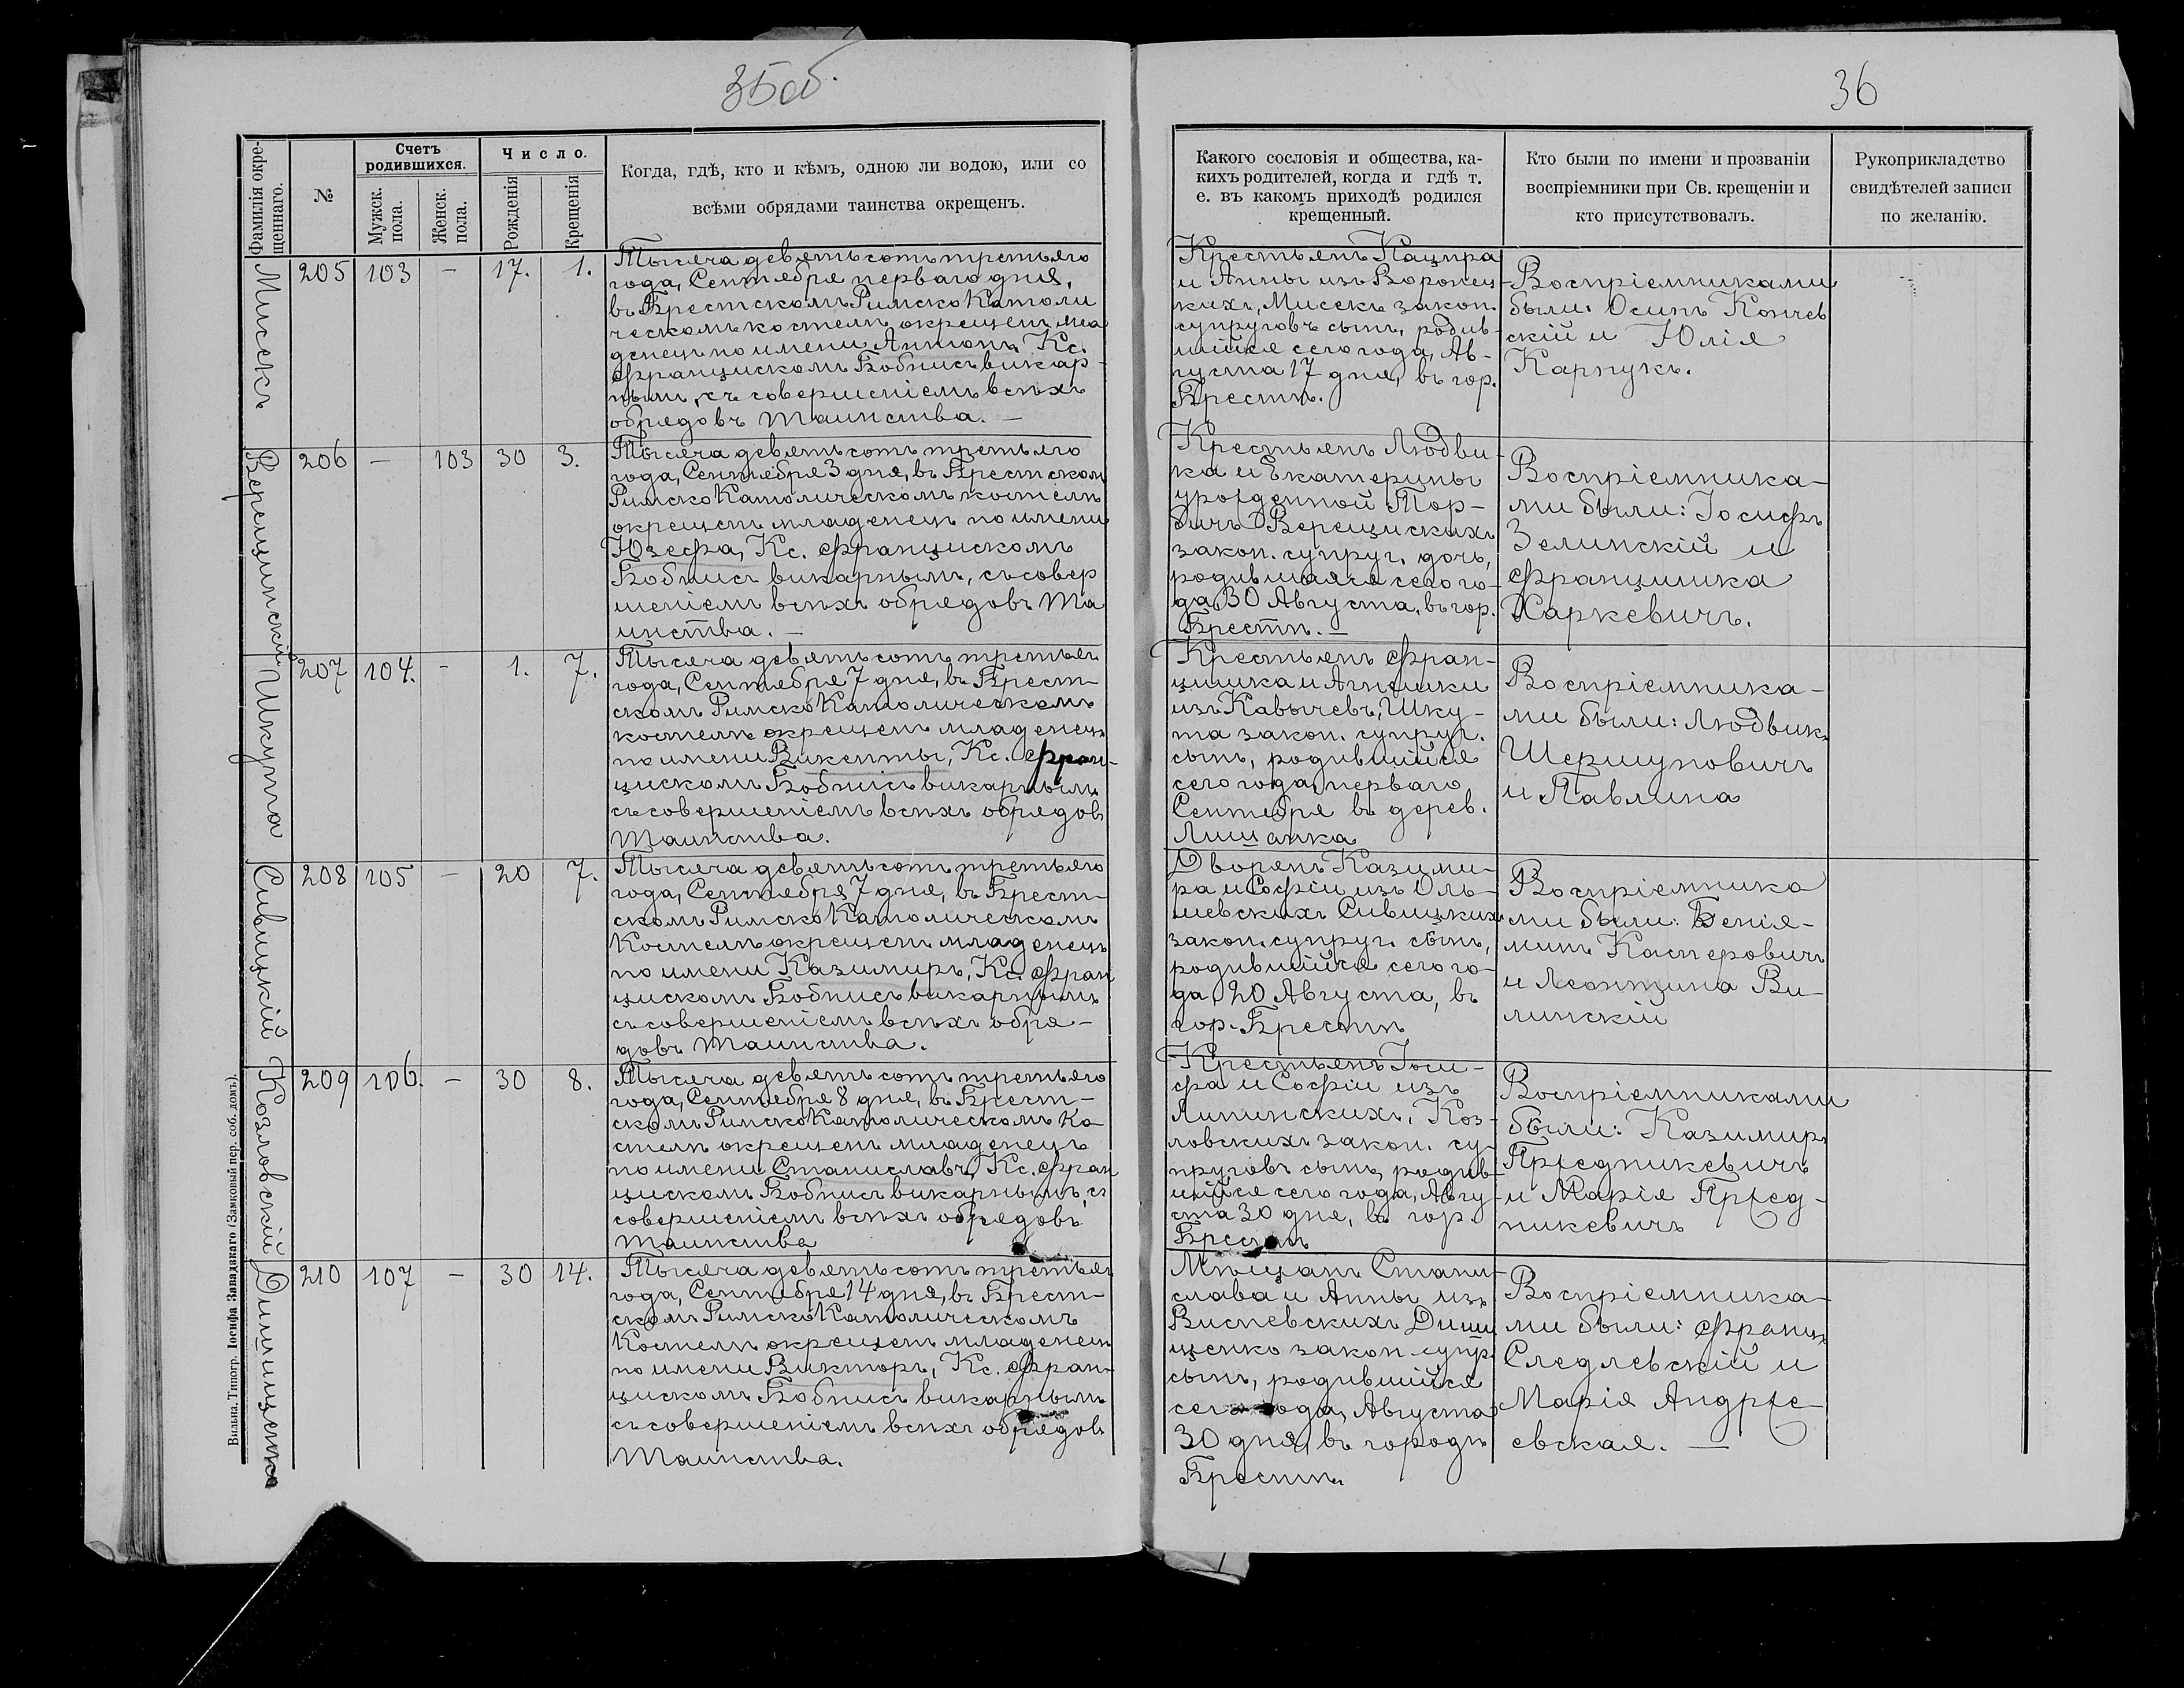 35об.
36
Фамилія окре-
щеннаго.
№
Счетъ
родившихся.
Мужск.
пола.
Женск.
пола.
Число.
Рожденія
Крещенія
Когда, гдѣ, кто и кѣмъ, одною ли водою, или со
всѣми обрядами таинства окрещенъ.
Какого сословія и общества, ка-
кихъ родителей, когда и гдѣ т.
е. въ какомъ приходѣ родился
крещенный.
Кто были по имени и прозваніи
воспріемники при Св. крещеніи и
кто присутствовалъ.
Рукоприкладство
свидѣтелей записи
по желанію.
Мисекъ
205 103 — 17. 1.
Тысяча девятьсотъ третьяго
года, Сентября перваго дня,
въ Брестскомъ Римско Католи
ческомъ костелѣ окрещенъ мла
денецъ по имени Антонъ, Кс.
Францискомъ Бобнисъ викар-
нымъ, съ совершеніемъ всѣхъ
обрядовъ Таинства. —
Крестьянъ Кацпра
и Анны изъ Воронец-
кихъ, Мисекъ закон.
супруговъ сынъ, родив-
шійся сего года, Ав-
густа 17 дня, въ гор.
Брестѣ.
Воспріемниками
были: Осипъ Кончев
скій и Юлія
Карпукъ.
Верещинскій
206 — 103 30 3.
Тысяча девятьсотъ третьяго
года, Сентября 3 дня, въ Брестском
Римско Католическомъ костелѣ
окрещенъ младенецъ по имени
Юзефа, Кс. Францискомъ
Бобнисъ викарнымъ, съ совер
шеніемъ всѣхъ обрядовъ Та
инства. —
Крестьянъ Людви-
ка и Екатерины
урожденной Тор-
бичъ Верещискихъ
закон. супруг. дочь,
родившаяся сего го-
да, 30 Августа, въ гор.
Брестѣ. —
Воспріемника-
ми были: Іосифъ
Зелинскій и
Францишка
Харкевичъ.
Шкута
207 104. — 1. 7.
Тысяча девятьсотъ третьяг
года, Сентября 7 дня, въ Брест-
скомъ Римско Католическомъ
костелѣ окрещенъ младенецъ
по имени Викенты, Кс. Фран-
цискомъ Бобнисъ викарнымъ
съ совершеніемъ всѣхъ обрядовъ
Таинства.
Крестьянъ Фран-
цишка и Агнешки
изъ Кавычевъ, Шку-
та закон. супруг.
сынъ, родившійся
сего года, перваго
Сентября въ дерев.
Лишанка
Воспріемника-
ми были: Людвикъ
Шершуновичъ
и Павлина
Сивицкій
208 105 — 20 7.
Тысяча девятьсотъ третьяго
года, Сентября 7 дня, въ Брест-
скомъ Римско Католическомъ
Костелѣ окрещенъ младенецъ
по имени Казимиръ, Кс. Фран
цискомъ Бобнисъ викарнымъ
съ совершеніемъ всѣхъ обря-
довъ Таинства.
Дворянъ Казими-
ра и Софіи изъ Оль-
шевскихъ Сивицкихъ
закон. супруг. сынъ,
родившійся сего го-
да, 20 Августа, въ
гор. Брестѣ
Воспріемника
ми были: Бенія-
минъ Касперовичъ
и Леонтина Ви-
линскій
Козловскій
209 106. — 30 8.
Тысяча девятьсотъ третьяго
года, Сентября 8 дня, въ Брест-
скомъ Римско Католическомъ Ко
стелѣ окрещенъ младенецъ
по имени Станиславъ, Кс. Фран
цискомъ Бобнисъ викарнымъ, съ
совершеніемъ всѣхъ обрядовъ
Таинства
Крестьянъ Іоси-
фа и Софіи изъ
Липинскихъ, Коз-
ловскихъ закон. су-
пруговъ сынъ, родив-
шійся сего года, Авгу-
ста 30 дня, въ гор.
Брестѣ
Воспріемниками
были: Казимиръ
Прждникевичъ
и Марія Пржед-
никевичъ
Дишищенко
210 107 — 30 14.
Тысяча девятьсотъ третьяг
года, Сентября 14 дня, въ Брест-
скомъ Римско Католическомъ
Костелѣ окрещенъ младенецъ
по имени Викторъ, Кс. Фран-
цискомъ Бобнисъ викарнымъ
съ совершеніемъ всѣхъ обрядовъ
Таинства.
Мѣщанъ Стани-
слава и Анны изъ
Висневскихъ Диши
щенко закон. супр.
сынъ, родившійся
сего года, Августа
30 дня, въ городѣ
Брестѣ.
Воспріемника-
ми были: Францъ
Следлевскій и
Марія Андрже-
евская. —
Вильна. Типогр. Іосифа Завадзкаго (Замковый пер. соб. домъ).